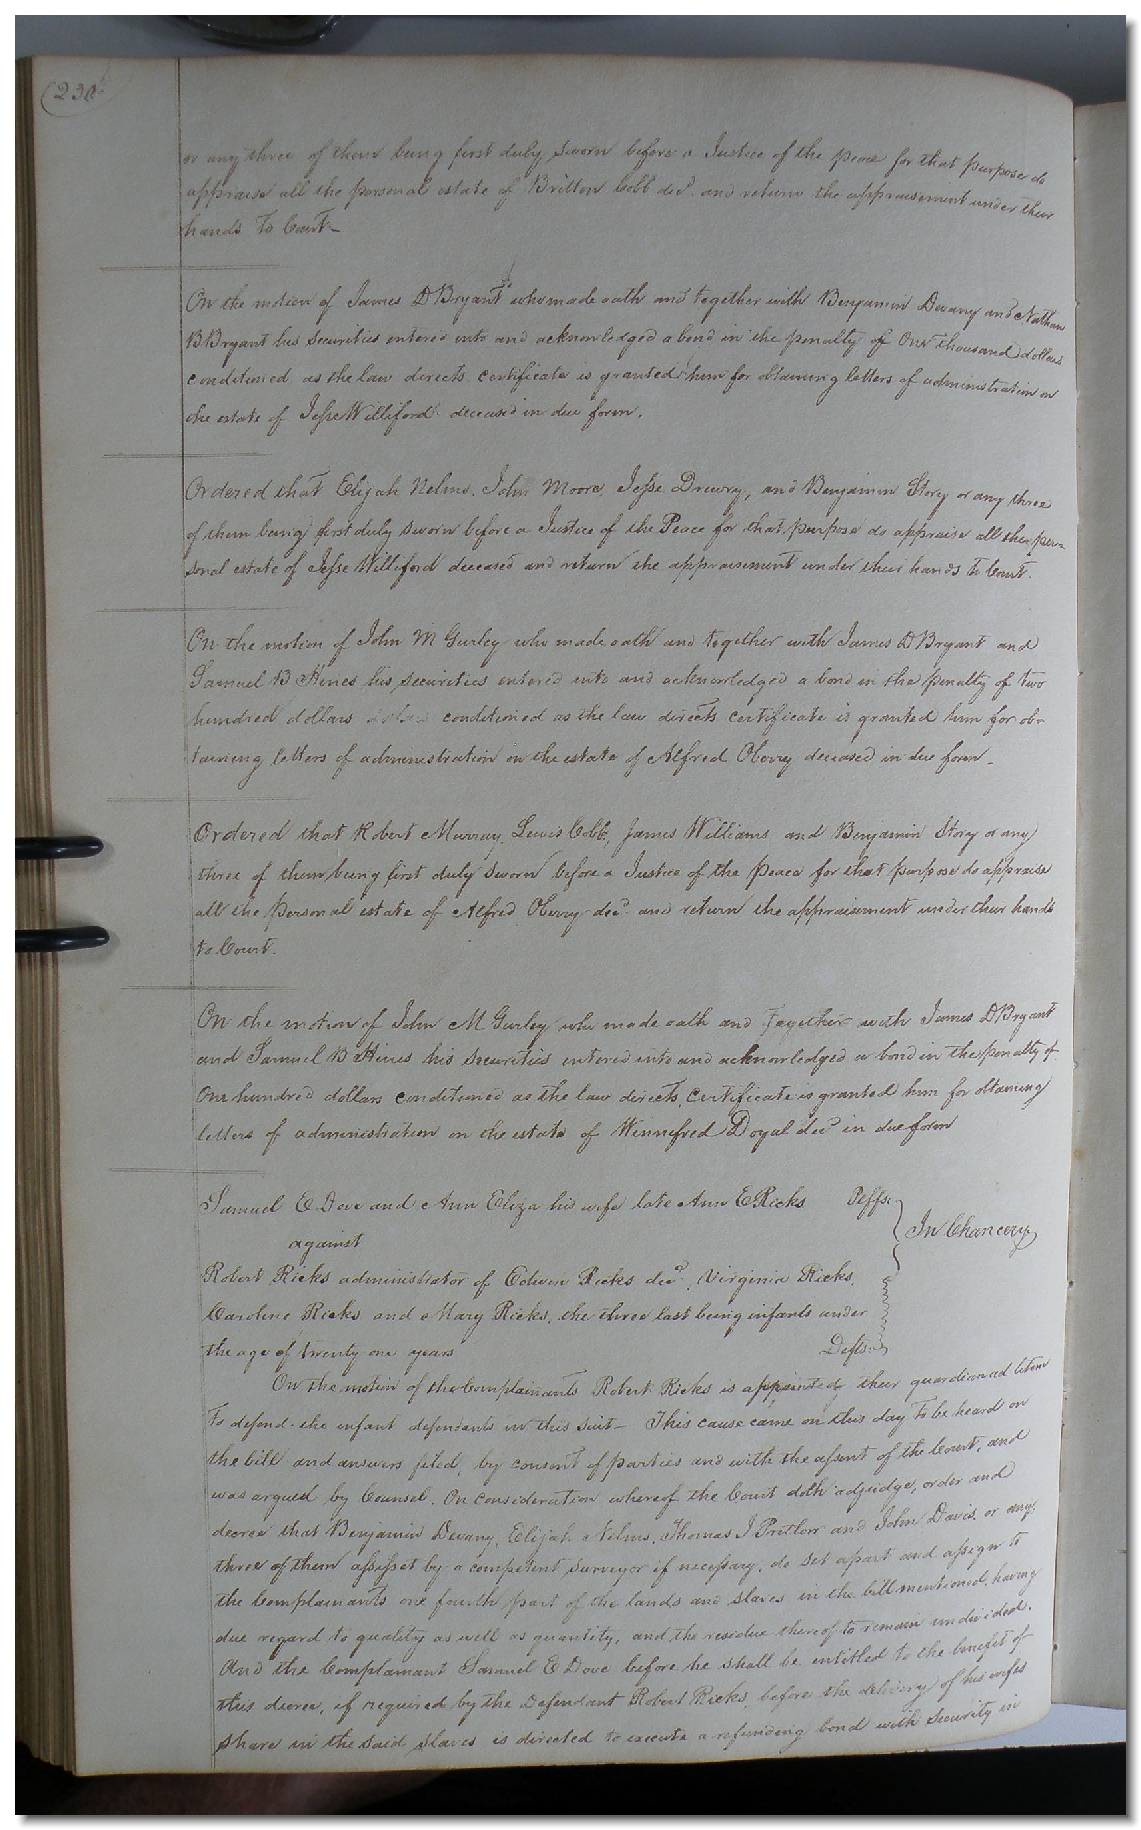 (230
or any three of them being first duly sworn before a Justice of the peace for that purpose do
appraise all the personal estate of Britton Cobb decd. and return the appraisement under their
hands to Court—
On the motion of James D Bryant who made oath and together with Benjamin Devany and Nathan
B Bryant his securities entered into and acknowledged a bond in the penalty of One thousand dollars
conditioned as the law directs certificate is granted him for obtaining letters of administration on
the estate of Jesse Williford deceased in due form.
Ordered that Elijah Nelms, John Moore, Jesse Drewry, and Benjamin Story or any three
of them being first duly sworn before a Justice of the Peace for that purpose do appraise all the per-
sonal estate of Jesse Williford deceased and return the appraisement under their hands to Court.
On the motion of John M Gurley who made oath and together with James D Bryant and
Samuel B Hines his securities entered into and acknowledged a bond in the penalty of two
hundred dollars conditioned as the law directs certificate is granted him for ob-
taining letters of administration on the estate of Alfred Oberry deceased in due form—
Ordered that Robert Murray, Lewis Cobb, James Williams and Benjamin Story or any
three of them being first duly sworn before a Justice of the peace for that purpose do appraise
all the personal estate of Alfred Oberry decd. and return the appraisement under their hands
to Court.
On the motion of John M Gurley who made oath and together with James D Bryant
and Samuel B Hines his securities entered into and acknowledged a bond in the penalty of
One hundred dollars conditioned as the law directs, certificate is granted him for obtaining
letters of administration on the estate of Winnefred Doyal decd in due form
Samuel E Dove and Ann Eliza his wife late Ann E Ricks Peffs.
In Chancery
against
Robert Ricks administrator of Edwin Ricks decd., Virginia Ricks,
Caroline Ricks and Mary Ricks, the three last being infants under
the age of twenty one years Defts
On the motion of the Complainants Robert Ricks is appointed their guardian ad litem
to defend the infant defendants in this suit— This cause came on this day to be heard on
the bill and answers filed, by consent of parties and with the assent of the Court, and
was argued by Counsel. On consideration whereof the Court doth adjudge, order and
decree that Benjamin Devany, Elijah Nelms, Thomas J Pretlow and John Davis, or any
three of them assisst by a competent surveyor if necessary, do set apart and assign to
the Complainants one fourth part of the lands and slaves in the bill mentioned, having
due regard to quality as well as quantity, and the residue thereof to remain undivided.
And the Complainant Samuel E Dove before he shall be entitled to the benefit of
this decree, if required by the Defendant Robert Ricks, before the delivery of his wifes
share in the said slaves is directed to execute a refunding bond with security in